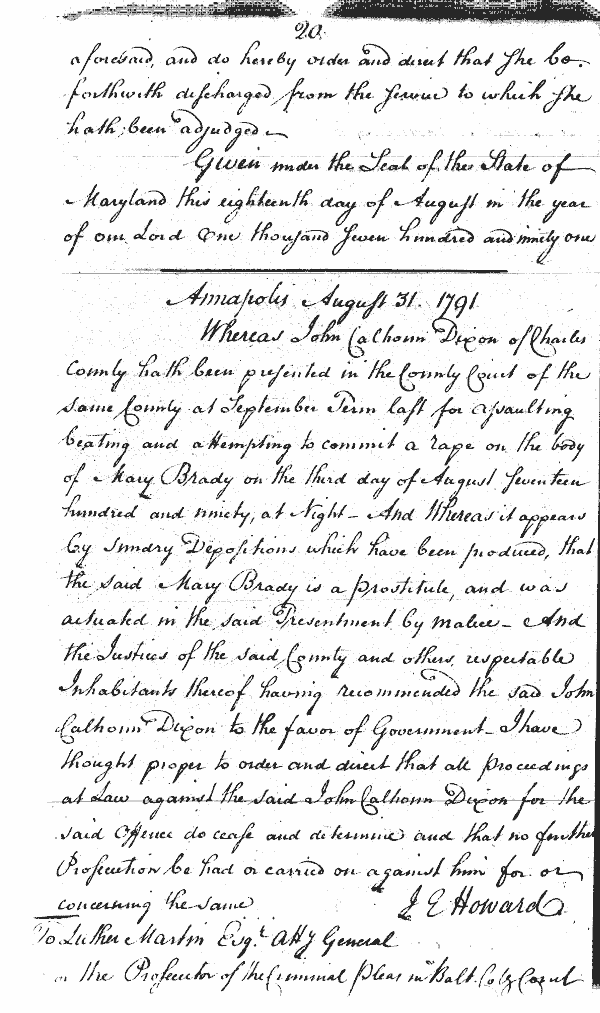 20.
aforesaid, and do hereby order and direct that She be.
forthwith discharged from the Service to which She
hath been adjudged—
Given under the Seal of the State of
Maryland this eighteenth day of August in the year
of our Lord One thousand Seven hundred and ninety one
Annapolis August 31. 1791
Whereas John Calhoun Dixon of Charles
County hath been presented in the County Court of the
same County at September Term last for assaulting
beating and attempting to commit a rape on the body
of Mary Brady on the third day of August Seventeen
hundred and ninety, at Night— And Whereas it appears
by sundry Depositions which have been produced, that
the said Mary Brady is a prostitute, and was
actuated in the said Presentment by malice— And
the Justices of the said County and others, respectable
Inhabitants thereof having recommended the said John
Calhoun Dixon to the favor of Government— I have
thought proper to order and direct that all proceedings
at Law against the said John Calhoun Dixon for the
said Offence do cease and determine and that no further
Prosecution be had or carried on against him for or
concerning the same
J E Howard
To Luther Martin Esqr. Atty General
or the Prosecutor of the Criminal Pleas in Balt. Coty Court